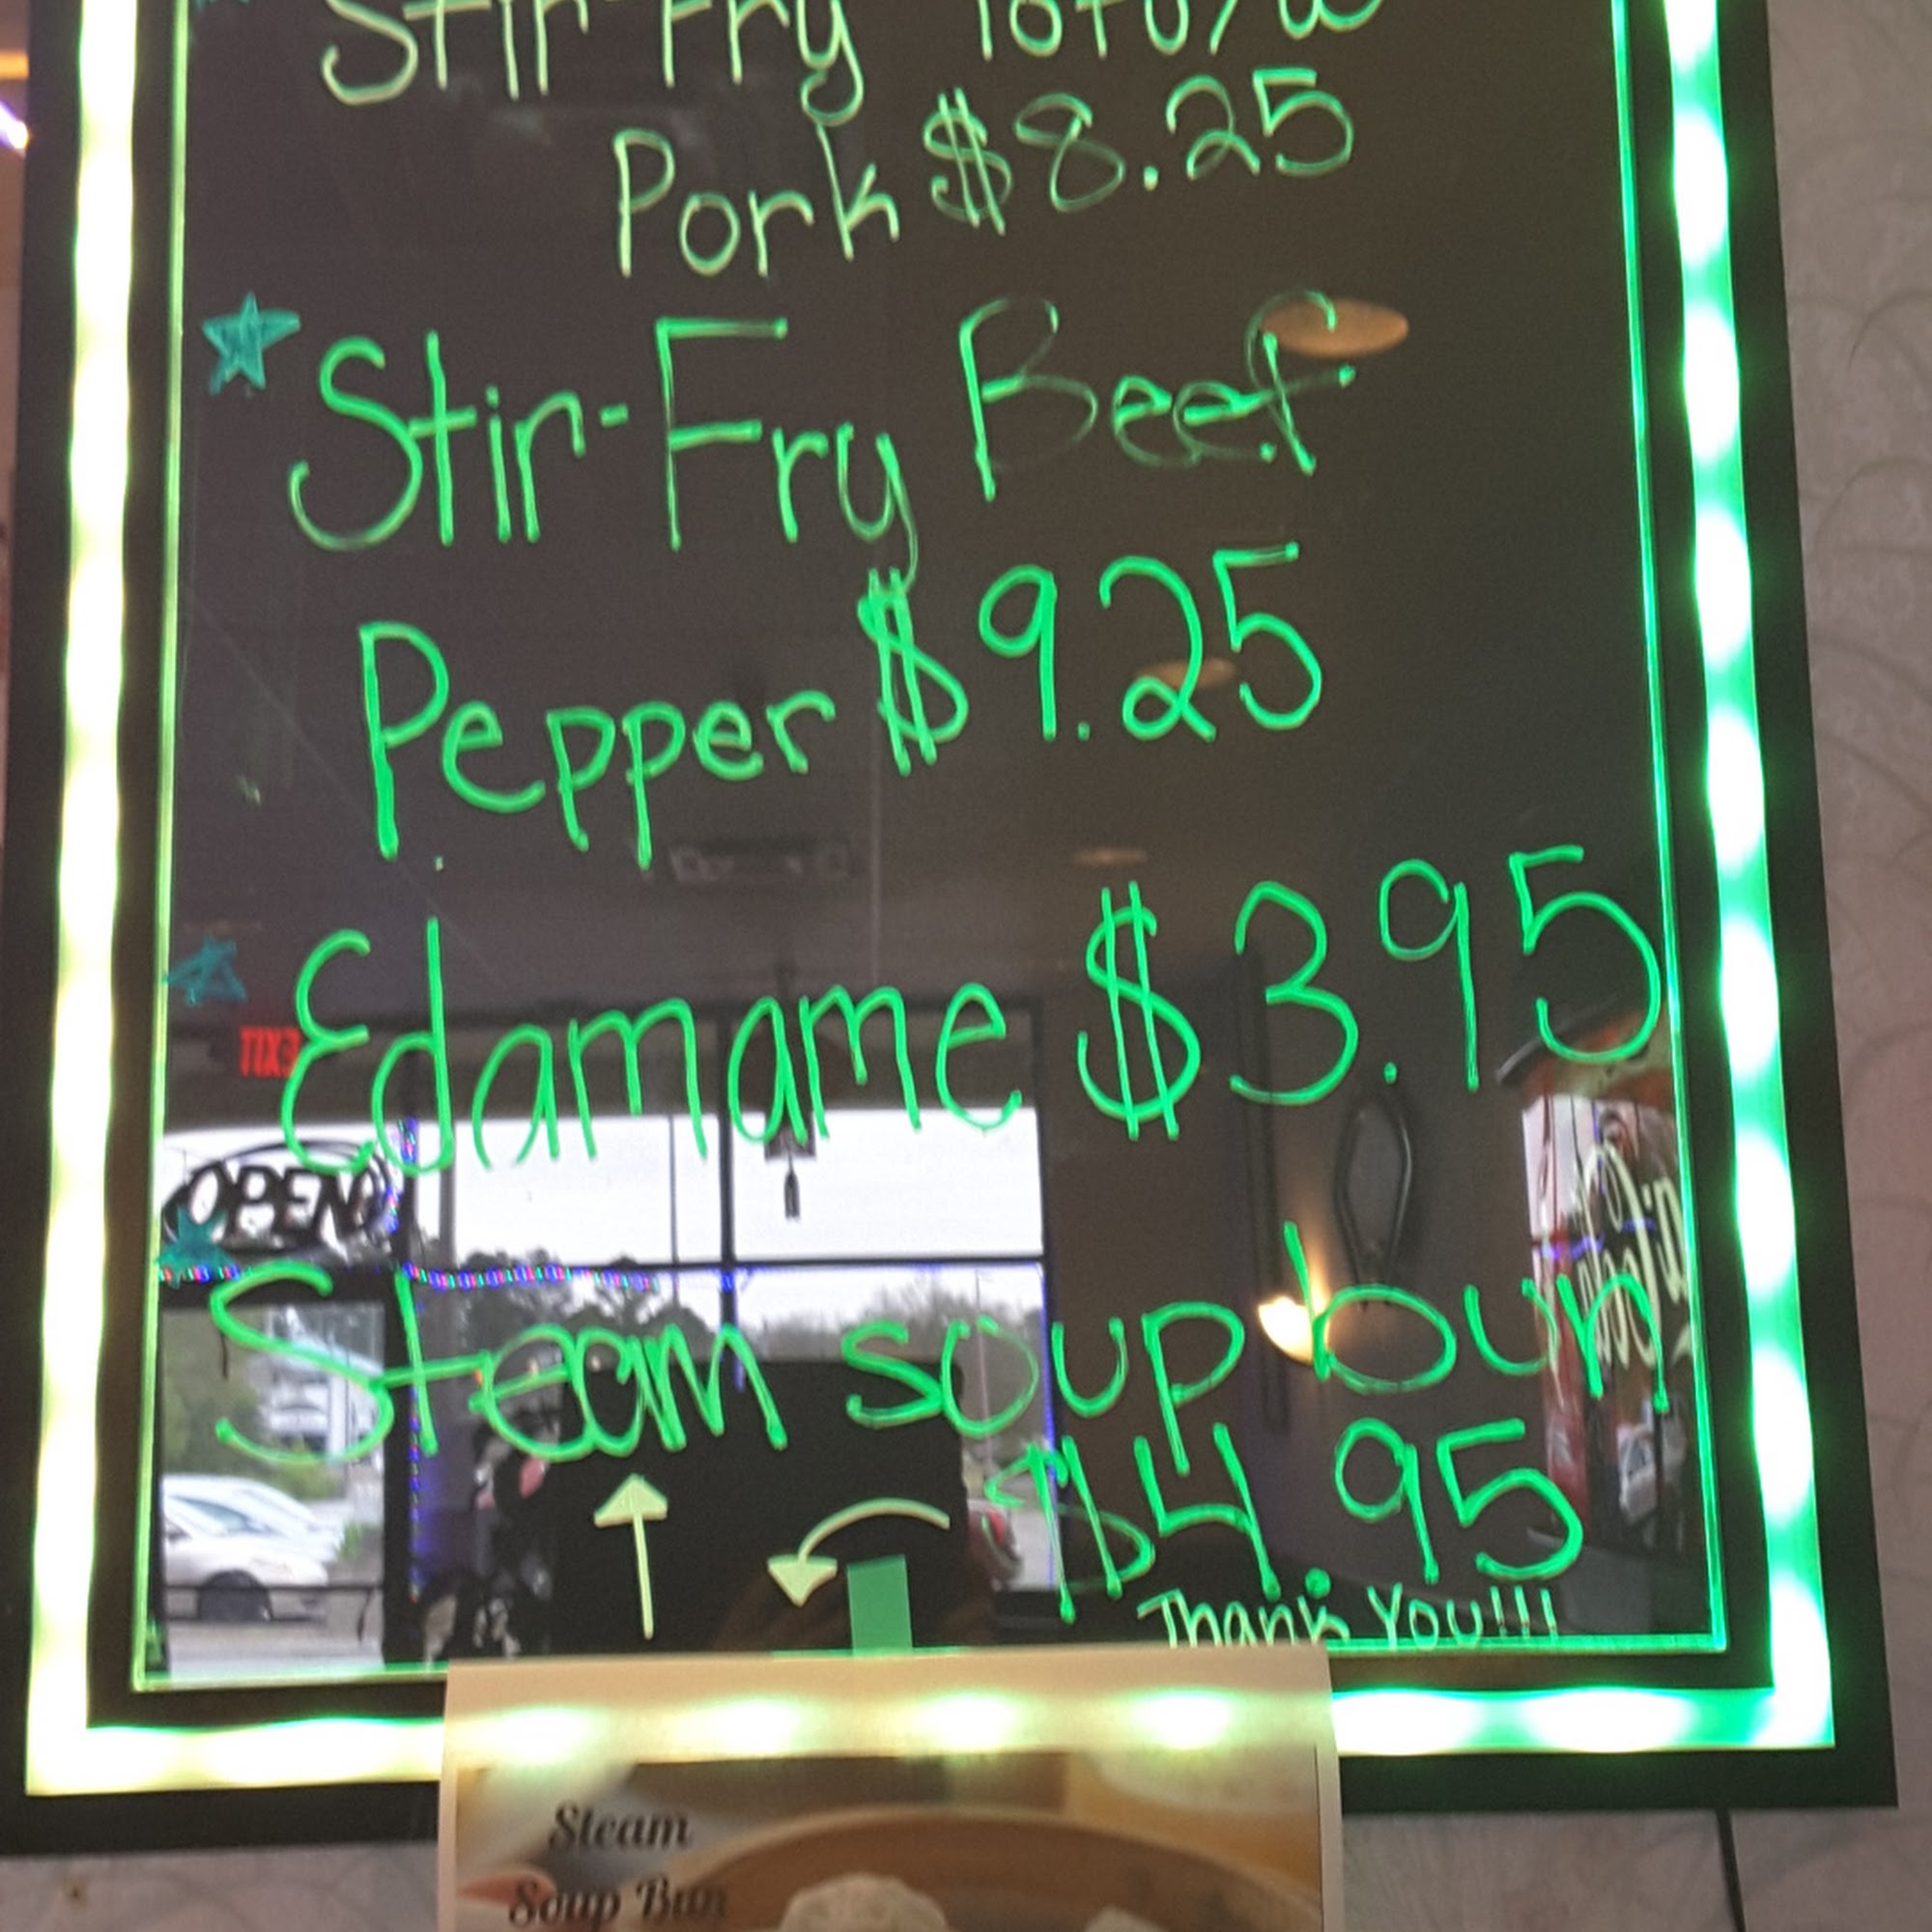 Stir-Fry Tofu/w
Pork $8.25
Stir-Fry Beef
Pepper $9.25
Edamame $3.95
EXIT
OPEN
Steam soup bun
$4.95
Thank You!!!
Steam
Soup Bun